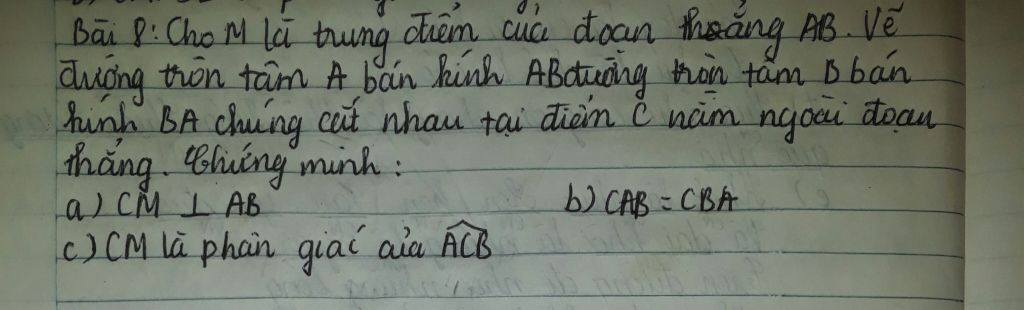 Bài 8: Cho M là trung điểm của đoạn thẳng AB. Vẽ
đường tròn tâm A bán kính AB đường tròn tâm B bán
kính BA chúng cắt nhau tại điểm C nằm ngoài đoạn
thẳng. Chứng minh:
a) CM ⊥ AB b) CAB = CBA
c) CM là phân giác của \widehat{ACB}